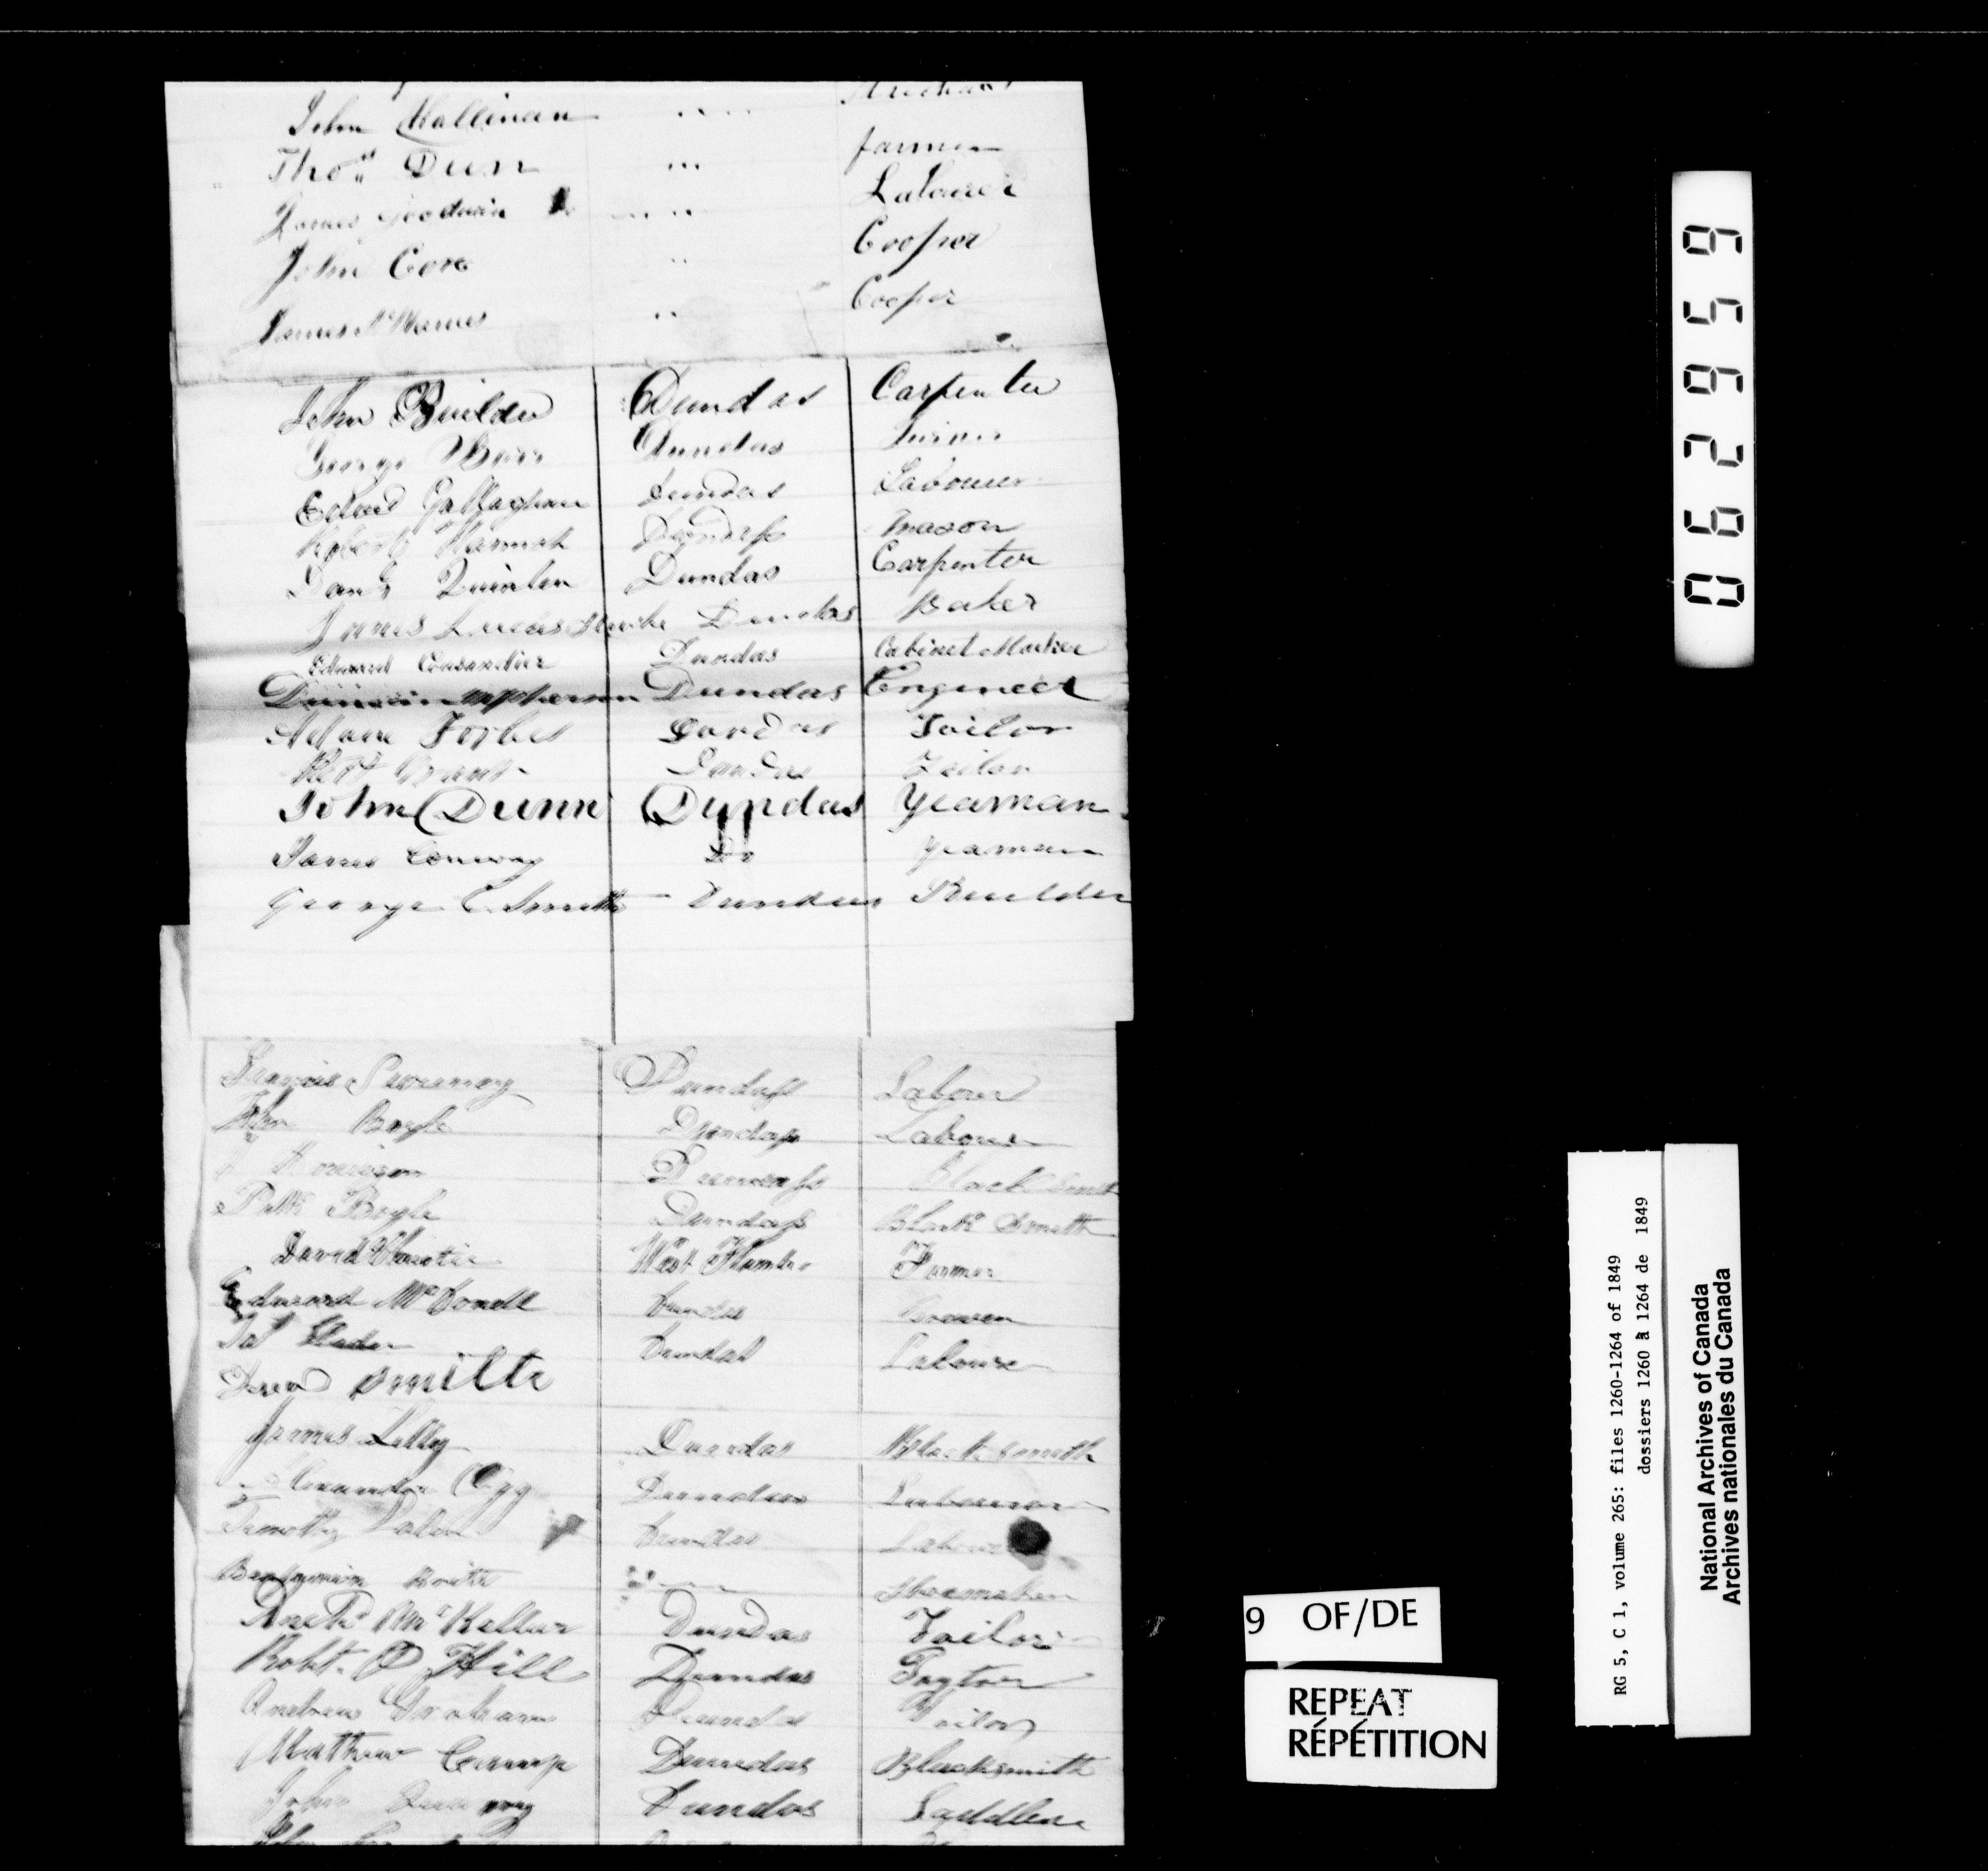 John Hallinan " " Mechanic
Thos Dunn " " farmer
James Goodwin " " Labourer
John Core " Cooper
James McManes " Cooper
John Builder Dundas Carpenter
George Barr Dundas Turner
Edward Gallaghan Dundas Labourer
Robert Hannah Dundass mason
Danl Quinlan Dundas Carpenter
James Lucas Dundas Baker
Edward Dundas Cabinet Maker
Duncan McPherson Dundas Engineer
Adam Forbes Dundas Tailor
Robt Grant Dundas Tailor
John Dunn Dundas Yeaman
James Conway Do yeaman
George C. Smith – Dundas Builder
Francis Sweeney Dundass Labour
John Boyle Dundass Labour
Dundass Black Smith
Patk Boyle Dundass Black Smith
David Christie West Flambro Farmer
Edward McDonell Dundas
Dundas Laboure
Smith
James Lilly Dundas Black smith
Ogg Dundas Labourer
Timothy Dundas Labourer
Benjamin " Shoemaker
McKellar Dundas Tailor
Robt. Hill Dundas
Andrew Graham Dundas Tailor
Matthew Camp Dundas Blacksmith
John Dundas Saddler
062959
9 OF/DE
REPEAT
RÉPÉTITION
RG 5, C 1, volume 265: files 1260-1264 of 1849
dossiers 1260 à 1264 de 1849
National Archives of Canada
Archives nationales du Canada